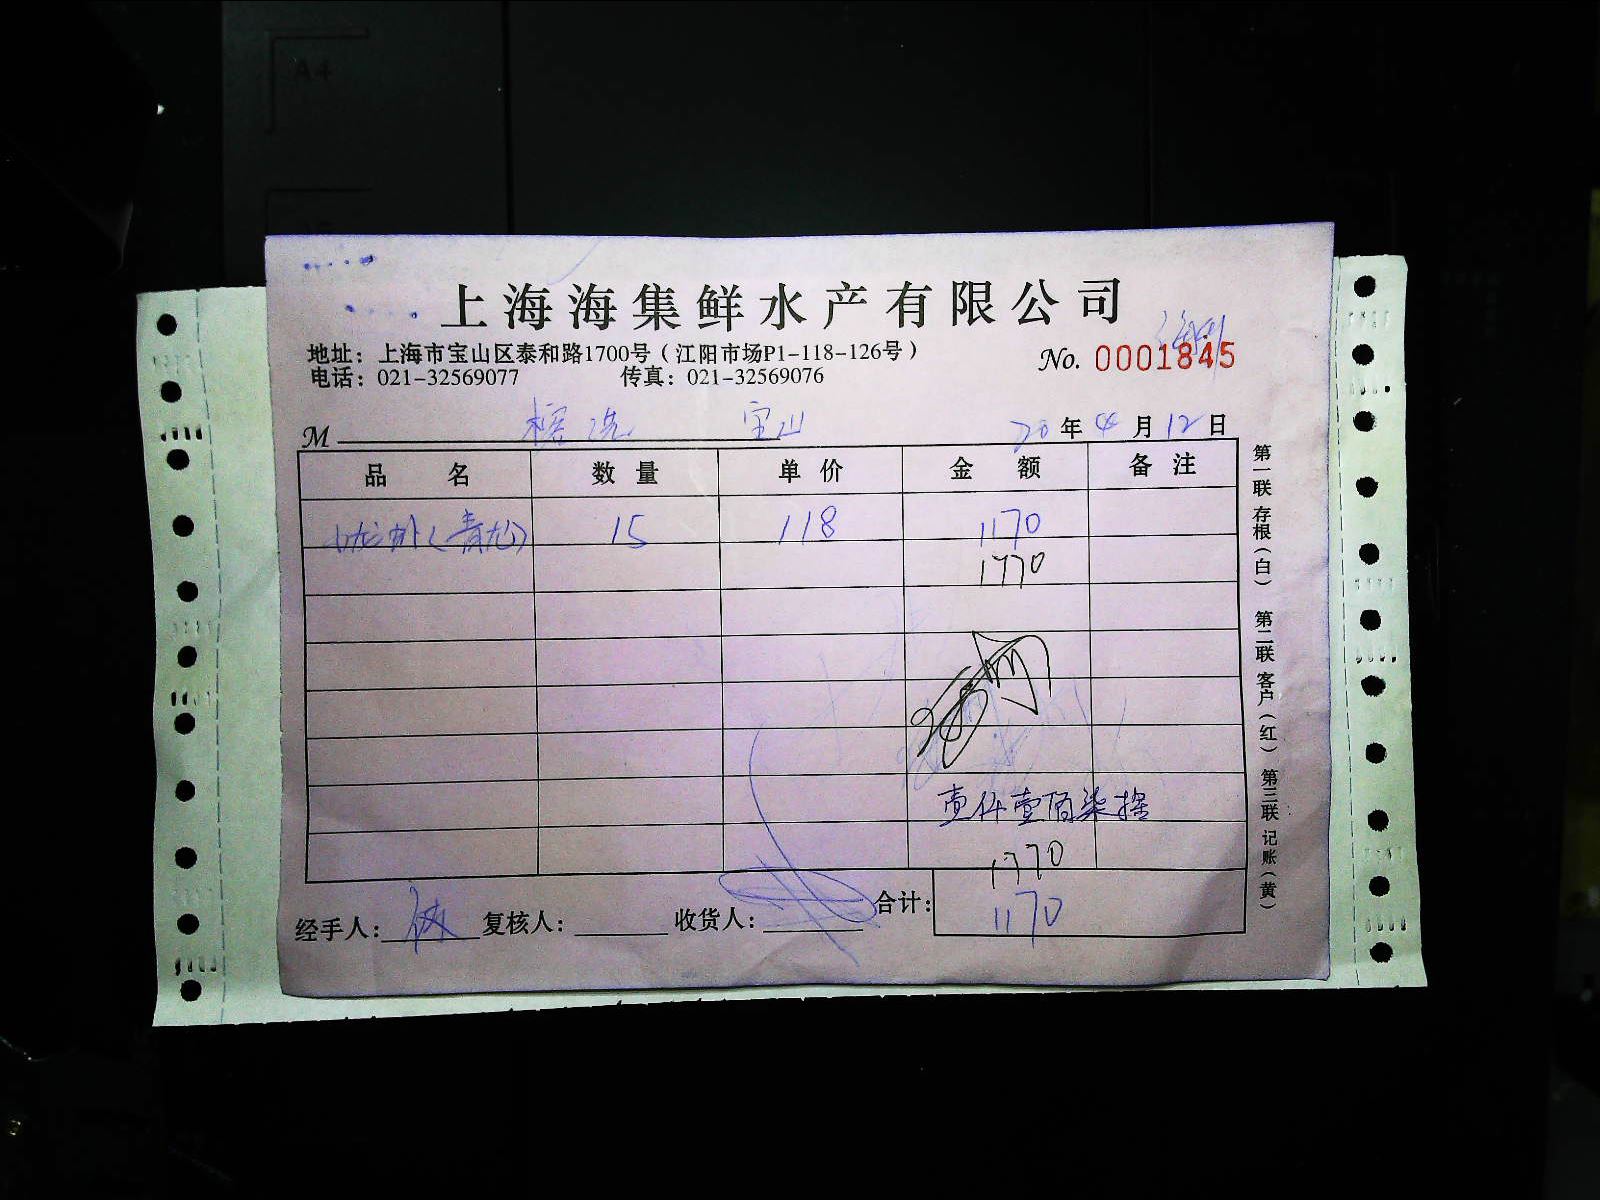 A4
上海海集鲜水产有限公司
地址：上海市宝山区泰和路1700号（江阳市场P1-118-126号）
No. 0001845
电话：021-32569077 传真：021-32569076
M 宝山 20年4月12日
品名 数量 单价 金额 备注
小龙虾(青龙) 15 118 1170
1770
壹仟壹佰柒拾
1770
经手人： 复核人： 收货人： 合计： 1170
第一联 存根（白） 第二联 客户（红） 第三联 记账（黄）